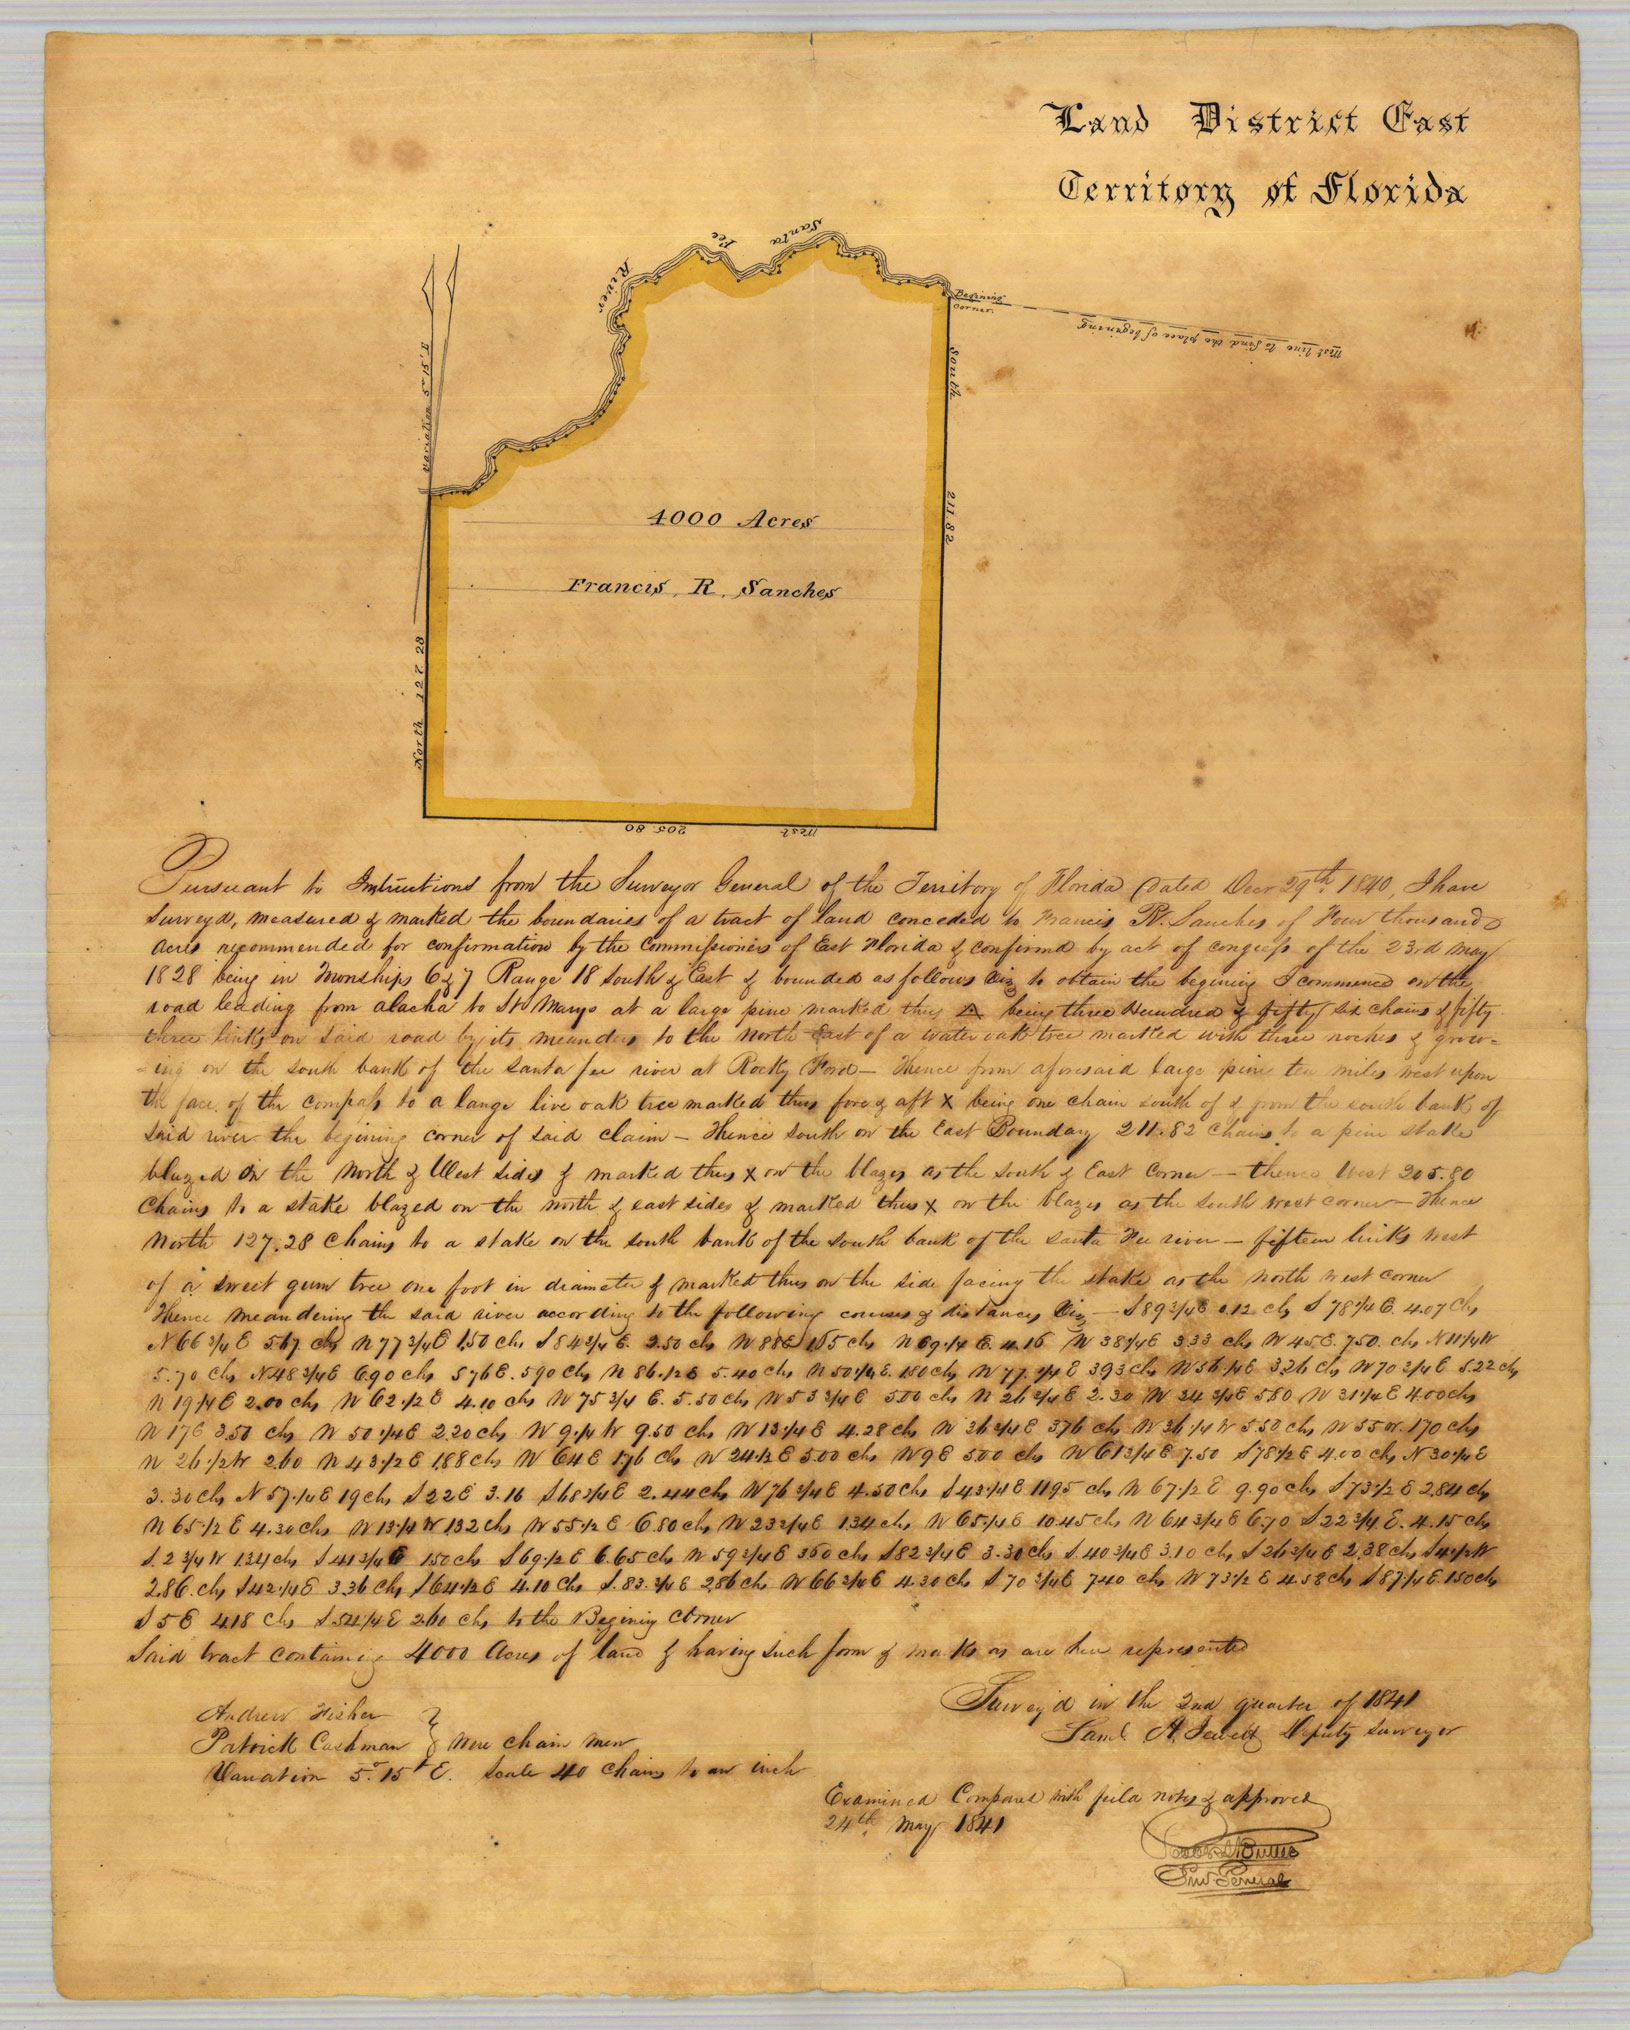 Land District East
Territory of Florida
Santa
Fee
River
Begining
Corner.
West line to find the place of beginning
South
211.82
variation 5° 15' E
4000 Acres
Francis. R. Sanches
North 127 28
West
205.80
Pursuant to Instructions from the Surveyor General of the Territory of Florida Dated Decr 29th 1840, I have
Surveyd, measured & marked the boundaries of a tract of land conceded to Francis R. Sanches of Four thousand
acres recommended for confirmation by the Commissioners of East Florida & confirmd by act of congress of the 23rd May
1828 being in Townships 6 & 7 Range 18 South & East & bounded as follows Viz to obtain the begining I commenced on the
road leading from alacha to St Marys at a large pine marked thus being three Hundred & fifty six chains & fifty
three links on said road by its meanders to the North East of a water oak tree marked with three noches & grow=
=ing on the south bank of the Santa fee river at Rocky Ford – Thence from aforesaid large pine ten miles west upon
the face of the compass to a large live oak tree marked thus fore & aft X being one chain south of & from the south bank of
said river the begining corner of said claim – Thence South on the East Boundary 211.82 Chains to a pine stake
blazed on the North & West sides & marked thus X on the blazes as the South & East Corner – thence West 205.80
Chains to a stake blazed on the north & east sides & marked thus X on the blazes as the South west corner – Thence
North 127.28 Chains to a stake on the south bank of the south bank of the Santa Fee river – fifteen links west
of a sweet gum tree one foot in diameter & marked thus on the side facing the stake as the North west corner
Thence meandering the said river according to the following courses & distances Viz – S 89 3/4 E 6.12 chs S 78 1/4 E. 4.07 Chs
N 66 3/4 E 5.67 chs N 77 3/4 E 1.50 chs S 84 3/4 E. 2.50 chs N 88 E 1.65 chs N 69 1/4 E. 4.16 N 38 1/4 E 3.33 chs N 45 E. 7.50. chs N 11 1/4 W
5.70 chs N 48 3/4 E 6.90 chs S 76 E. 5.90 chs N 86 1/2 E 5.40 chs N 50 1/4 E. 1.80 chs N 77 1/4 E 3.93 chs N 56 1/4 E 3.26 chs N 70 3/4 E 5.22 chs
N 19 1/4 E 2.00 chs N 62 1/2 E 4.10 chs N 75 3/4 E. 5.50 chs N 53 3/4 E 5.00 chs N 26 3/4 E 2.30 N 24 3/4 E 5.80 N 31 1/4 E 4.00 chs
N 17 E 3.50 chs N 50 1/4 E 2.20 chs N 9 1/4 W 9.50 chs N 13 1/4 E 4.28 chs N 36 3/4 E 3.76 chs N 36 1/4 W 5.50 chs N 55 W. 1.70 chs
N 26 1/2 W 2.60 N 43 1/2 E 1.88 chs N 64 E 1.76 chs N 24 1/2 E 5.00 chs N 9 E 5.00 chs N 61 3/4 E 7.50 S 78 1/2 E 4.00 chs N 30 1/4 E
3.30 chs N 57 1/4 E 19 chs S 22 E 3.16 S 68 3/4 E 2.44 chs N 76 3/4 E 4.50 chs S 43 1/4 E 11.95 chs N 67 1/2 E 9.90 chs S 73 1/2 E 2.84 chs
N 65 1/2 E 4.30 chs N 13 1/4 W 1.32 chs N 55 1/2 E 6.80 chs N 23 3/4 E 1.34 chs N 65 1/4 E 10.45 chs N 64 3/4 E 6.70 S 22 3/4 E. 4.15 chs
S. 2 3/4 W 1.34 chs S 41 3/4 E 1.50 chs S 69 1/2 E 6.65 chs N 59 3/4 E 3.60 chs S 82 3/4 E 3.30 chs S. 40 3/4 E 3.10 chs S 26 3/4 E 2.38 chs S 4 1/2 W
2.86. chs S 42 1/4 E 3.36 chs S 64 1/2 E 4.10 chs S. 83 3/4 E 2.86 chs N 66 3/4 E 4.30 chs S 70 3/4 E 7.40 chs N 73 1/2 E 4.58 chs S 87 1/4 E. 1.50 chs
S 5 E 4.18 chs S 54 1/4 E 2.60 chs to the Begining Corner
Said tract containing 4000 Acres of land & having such form & marks as are here represented
Andrew Fisher
Patrick Cashman } Were chain men
Variation 5° 15' E. Scale 40 Chains to an inch
Survey'd in the 2nd quarter of 1841
Saml. A. Jewett Deputy Surveyor
Examined Compared with field notes & approved
24th May 1841
Surv General